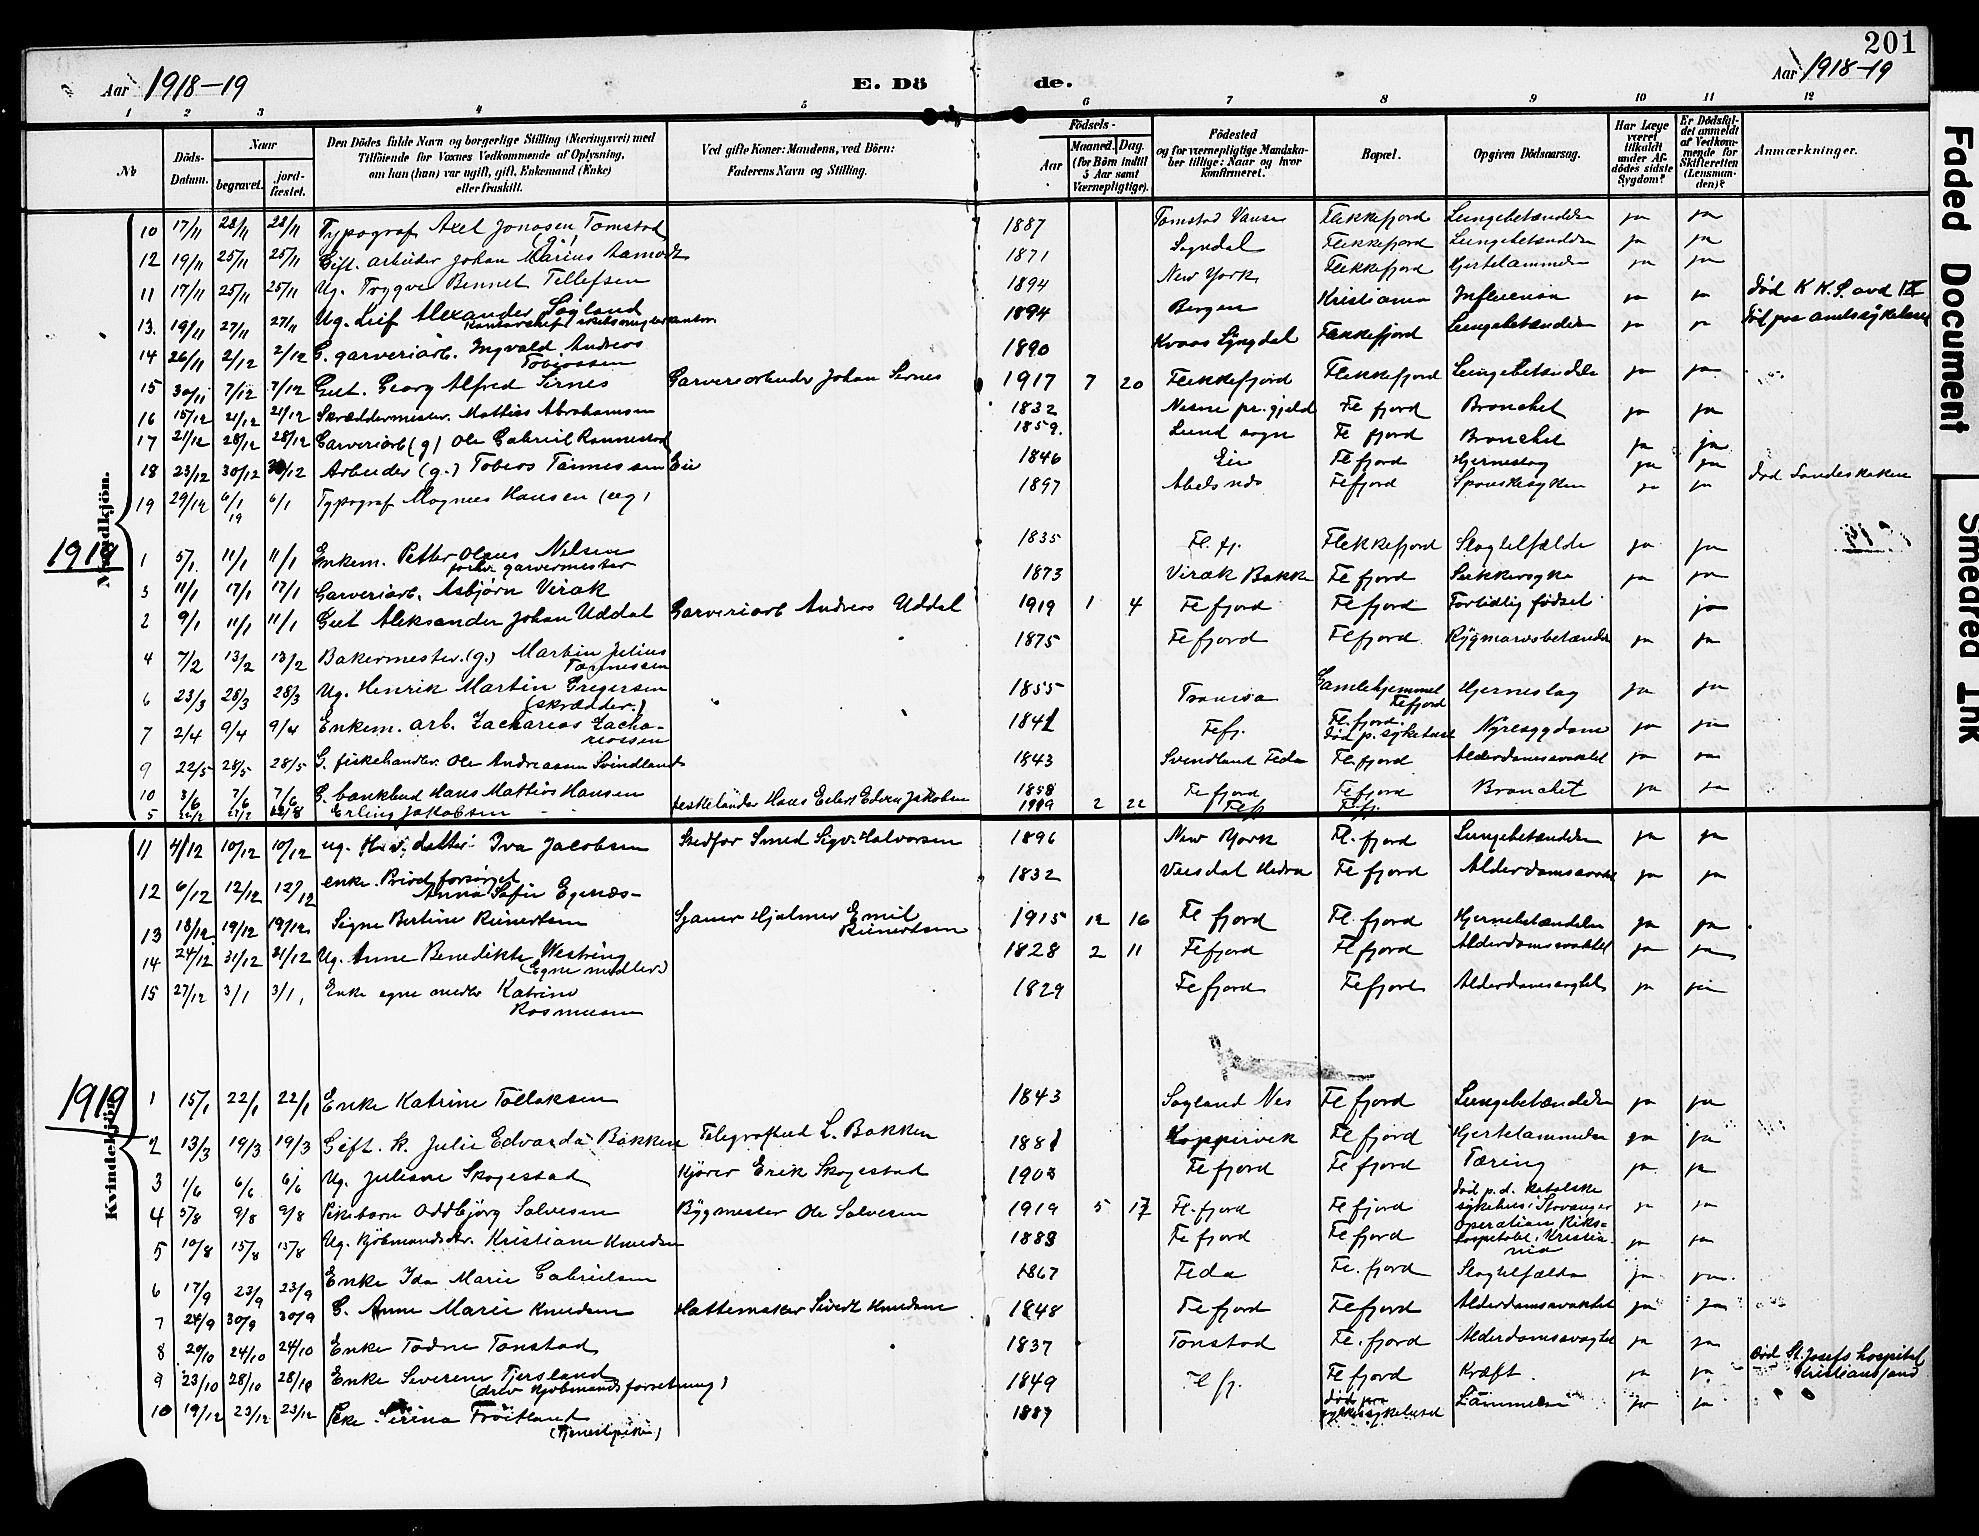 201
Aar 1918-19 E. Dö de. Aar 1918-19
1 2 3 4 5 6 7 8 9 10 11 12
№ Döds-Datum. Naar begravet. jord-fæstet. Den Dödes fulde Navn og borgerlige Stilling (Næringsvei) med Tilföiende for Voxnes Vedkommende af Oplysning, om han (hun) var ugift, gift, Enkemand (Enke) eller fraskilt. Ved gifte Koner: Mandens, ved Börn: Faderens Navn og Stilling. Födsels- Aar Maaned. Dag. (for Börn indtil 5 Aar samt Værnepligtige). Födested og for værnepligtige Mandska-ber tillige: Naar og hvor konfirmeret. Bopæl. Opgiven Dödsaarsag. Har Læge været tilkaldt under Af-dödes sidste Sygdom? Er Dödsfal-det anmeldt af Vedkom-mende for Skifteretten (Lensman-den)? Anmærkninger.
Mandkjön.
10 17/11 28/11 28/11 Typograf Axel Jonasen Tomstad 1887 Tomstad Vanse Flekkefjord Lungebetændelse ja ja
12 19/11 25/11 25/11 Gift. arbeider Johan Marius Aamodt 1871 Sogndal Flekkefjord Lungebetændelse ja ja
11 17/11 25/11 25/11 Ug. Trygve Bennet Tellefsen 1894 New York Flekkefjord Hjertelammelse ja ja
13. 19/11 27/11 27/11 Ug. Leif Alexander Søyland 1894 Bergen Kristiania Influensa ja ja Død K.K.S. avd IX
14 26/11 2/12 2/12 G. garveriarb. Ingvald Andreas Tobiassen 1890 Kvaas Lyngdal Flekkefjord Lungebetændelse ja ja Død paa amtssykehuset
15 30/11 7/12 7/12 Gut. Georg Alfred Sirnes Garveriarbeider Johan Sirnes 1917 7 20 Flekkefjord Flekkefjord Lungebetændelse ja ja
16 15/12 21/12 21/12 Skræddermester. Mathias Abrahamsen 1832 Nesne pr. gjeld Fl fjord Bronchet ja ja
17 21/12 28/12 28/12 Garveriarb (g) Ole Gabriel Rannestad 1859. Lund sogn Fl fjord Bronchet ja ja
18 23/12 30/12 30/12 Arbeider (g.) Tobias Tønnessen Eie 1846 Eie Fl fjord Hjerneslag ja ja
19 29/12 6/1 19 6/1 Typograf Magnus Hansen (ug) 1897 Abelsnes Flfjord Spanskesyken ja ja død Landeskoken
1919
1 5/1. 11/1 11/1 Enkem. Petter Olaus Nilsen forhv. garvermester 1835 Fl. fj. Flekkefjord Slagtilfælde ja ja
3 11/1 17/1 17/1 Garveriarb. Asbjørn Virak 1873 Virak Bakke Fl fjord Sukkersyke ja ja
2 9/1 11/1 11/1 Gut Aleksander Johan Uddal Garveriarb Andreas Uddal 1919 1 4 Fl fjord Fl fjord Fortidlig fødsel ja
4 7/2 13/2 13/2 Bakermester. (g.) Martin Julius Tønnessen 1875 Fl fjord Fl fjord Rygmarvsbetændelse ja ja
6 23/3 28/3 28/3 Ug. Henrik Martin Gregersen (skrædder.) 1855 Tromsø Gamlehjemmet Flfjord Hjerneslag ja ja
7 2/4 9/4 9/4 Enkem. arb. Zacharias Zachariassen 1841 Flfj. Fl. fjord. død p. sykehuset Nyresygdom ja ja
9 22/5 28/5 28/5 G. fiskehandler. Ole Andreassen Svindland 1843 Svindland Feda Fl fjord Alderdomssvakhet ja ja
10 3/6 7/6 7/6 G. bankbud Hans Mathias Hansen 1858 Fl fjord Fl fjord Bronchet ja ja
5 Erling Jakobsen Hans Eilert Edvin Jakobsen 1919 2 22 Flfj Flfj
Kvindekjön.
11 4/12 10/12 10/12 ug. Husv. datter: Iva Jacobsen Stedfar Smed Sigv. Halvorsen 1896 New York Fl. fjord Lungebetændelse ja ja
12 6/12 12/12 12/12 enke. Privat forsørget Anna Sofie Egenæs- 1832 Veisdal Hidra Fl fjord Alderdomssvakhet ja ja
13 13/12 19/12 19/12 Signe Bertine Reinertsen Hjalmar Emil Reinertsen 1915 12 16 Fl fjord Fl. fjord Hjernebetændelse ja ja
14 24/12 31/12 31/12 Ug. Anne Benedikte Westring (Egne midler) 1828 2 11 Flfjord Flfjord Alderdomssvakhet ja ja
15 27/12 3/1 3/1, Enke egne midler Katrine Rasmussen 1829 Fl fjord Fl fjord Alderdomssvaghet ja ja
1919
1 15/1 22/1 22/1 Enke Katrine Tollaksen 1843 Søyland Nes Fl fjord Lungebetændelse ja ja
2 13/3 19/3 19/3 Gift. k. Julie Edvarda Bakken Telegrafbud L. Bakken 1881 Koppervik Fl fjord Hjertelammelse ja ja
3 1/6 6/6 6/6 Ug. Juliane Skogestad Kjører Erik Skogestad 1903 Fl fjord Fl fjord Tæring ja ja
4 5/8 9/8 9/8 Pikebarn Oddbjørg Salvesen Bygmester Ole Salvesen 1919 5 17 Fl. fjord Fl fjord død p. d. katolske sykehus i Stavanger ja ja
5 10/8 15/8 15/8 Ug. Kjøbmandsdtr. Kristiane Knudsen 1883 Fl fjord Fl fjord Operation, Rikshospitalet, Kristiania ja ja
6 17/9 23/9 23/9 Enke Ida Marie Gabrielsen 1867 Feda Fl. fjord Slagtilfælde ja ja
7 24/9 30/9 30/9 G. Anne Marie Knudsen Hattemaker Sivert Knudsen 1848 Fl fjord Flfjord Alderdomssvakhet ja ja
8 20/10 24/10 24/10 Enke Todne Tonstad 1837 Tonstad Fl. fjord Alderdomssvaghet ja ja
9 23/10 28/10 28/10 Enke Severine Tjersland (drev Kjøbmandsforretning) 1849 Fl fj. Fl fjord Kræft. ja ja Død St. Josefs hospital Kristianssand
10 19/12 23/12 23/12 Pike. Sirina Frøitland (Tjenestepike) 1889 død paa sykehuset Lammelse ja ja
Faded Document
Smeared Ink